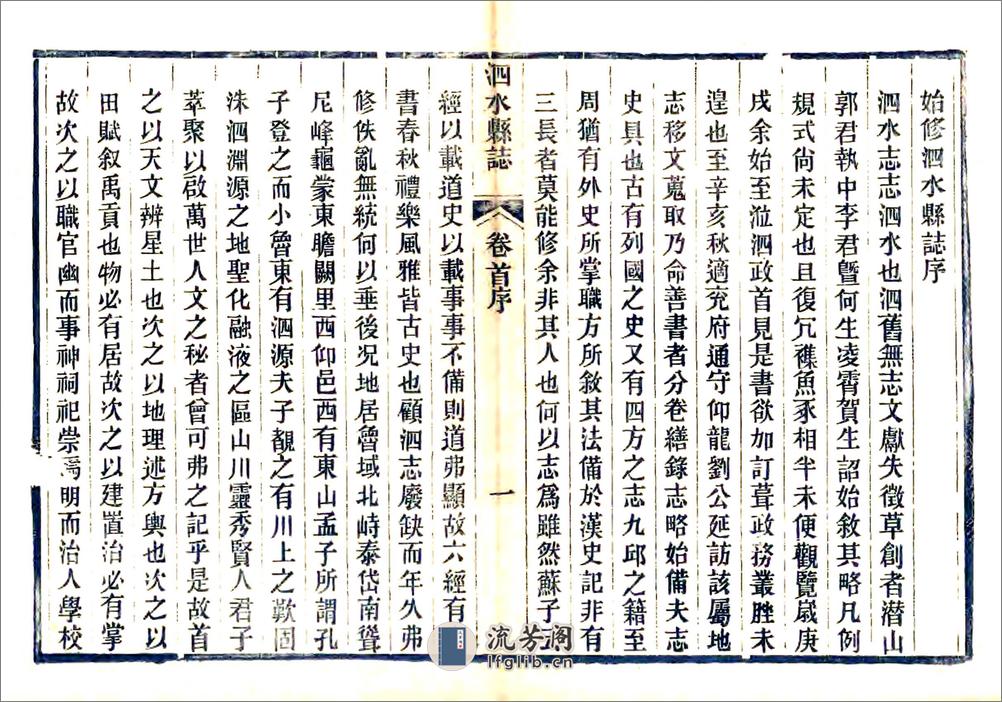 始修泗水縣誌序
泗水志志泗水也泗舊無志文獻失徵草創者潛山
郭君執中李君曁何生凌霄賀生詔始敘其略凡例
規式尚未定也且復冗襍魚豕相半未便觀覽歲庚
戌余始至涖泗政首見是書欲加訂葺政務叢脞未
遑也至辛亥秋適充府通守仰龍劉公延訪該屬地
志移文蒐取乃命善書者分卷繕錄志略始備夫志
史具也古有列國之史又有四方之志九邱之籍至
周猶有外史所掌職方所敘其法備於漢史記非有
三長者莫能修余非其人也何以志爲雖然蘇子云
泗水縣誌
卷首序
一
經以載道史以載事事不備則道弗顯故六經有
書春秋禮樂風雅皆古史也顧泗志廢缺而年久弗
修佚亂無統何以垂後况地居魯域北峙泰岱南聳
尼峰龜蒙東瞻闕里西仰邑西有東山孟子所謂孔
子登之而小魯東有泗源夫子觀之有川上之歎固
洙泗淵源之地聖化融液之區山川靈秀賢人君子
萃聚以啟萬世人文之秘者曾可弗之記乎是故首
之以天文辨星土也次之以地理述方輿也次之以
田賦叙禹貢也物必有居故次之以建置治必有掌
故次之以職官幽而事神祠祀崇焉明而治人學校
流芳阁
lfglib.cn